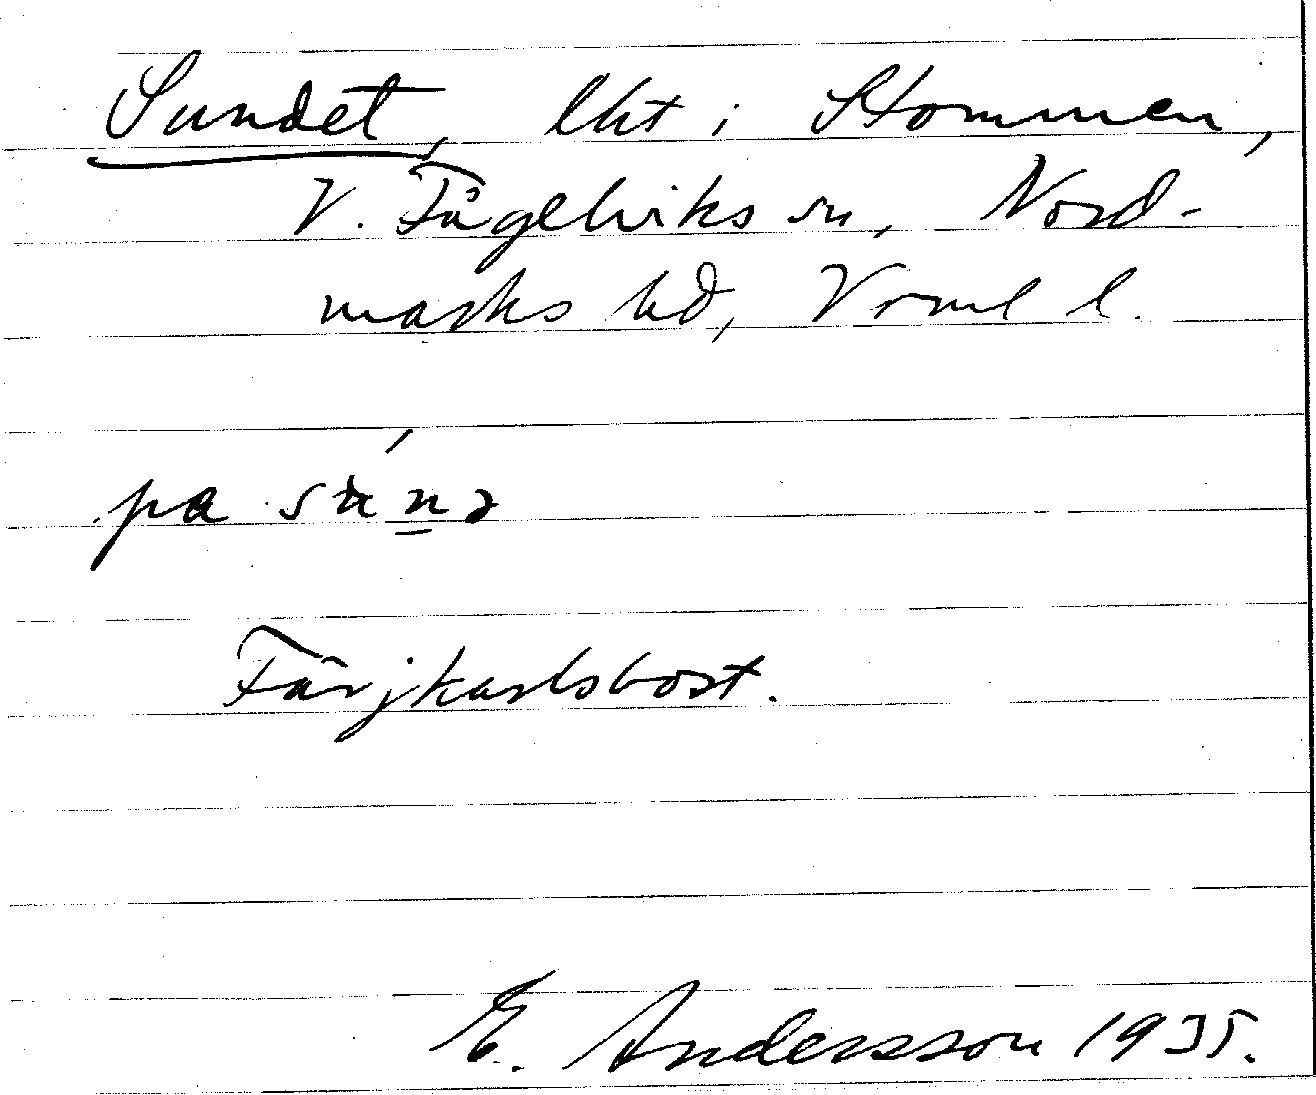 Sundet, lht i Stommen,
V. Fågelviks sn, Nord-
marks hd, Vrml l.
pa sú̱nə
Färjkarlsbost.
E. Andersson 1935.